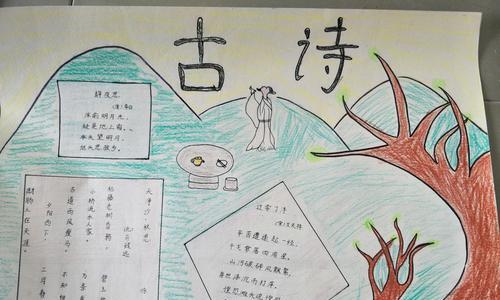 古诗
静夜思
(唐)李白
床前明月光,
疑是地上霜。
举头望明月,
低头思故乡。
天净沙·秋思
枯藤老树昏鸦,
小桥流水人家,
古道西风瘦马。
夕阳西下,
断肠人在天涯。
不知细
二月春
过零丁洋
(宋)文天祥
辛苦遭逢起一经,
干戈寥落四周星。
山河破碎风飘絮,
身世浮沉雨打萍。
惶恐滩头说惶恐